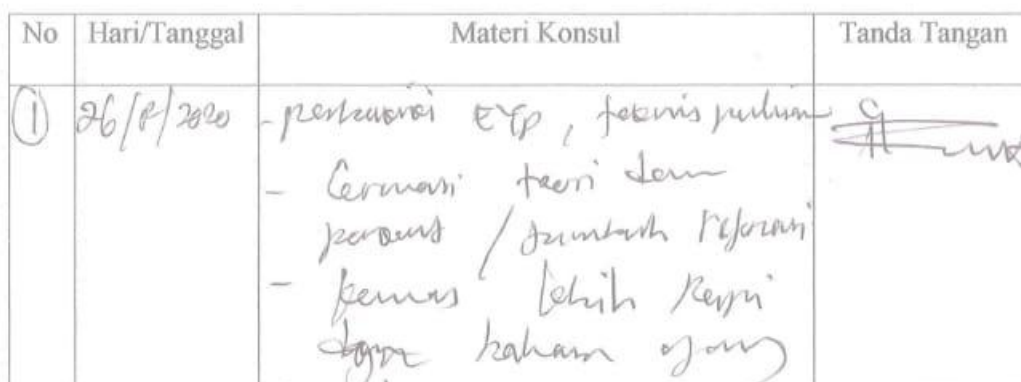 No Hari/Tanggal Materi Konsul Tanda Tangan
1 26/8/2020 - perbaiki EYD, teknis
- Cermati teori dan
/ referensi
- kemas lebih rapi
bahasa yang